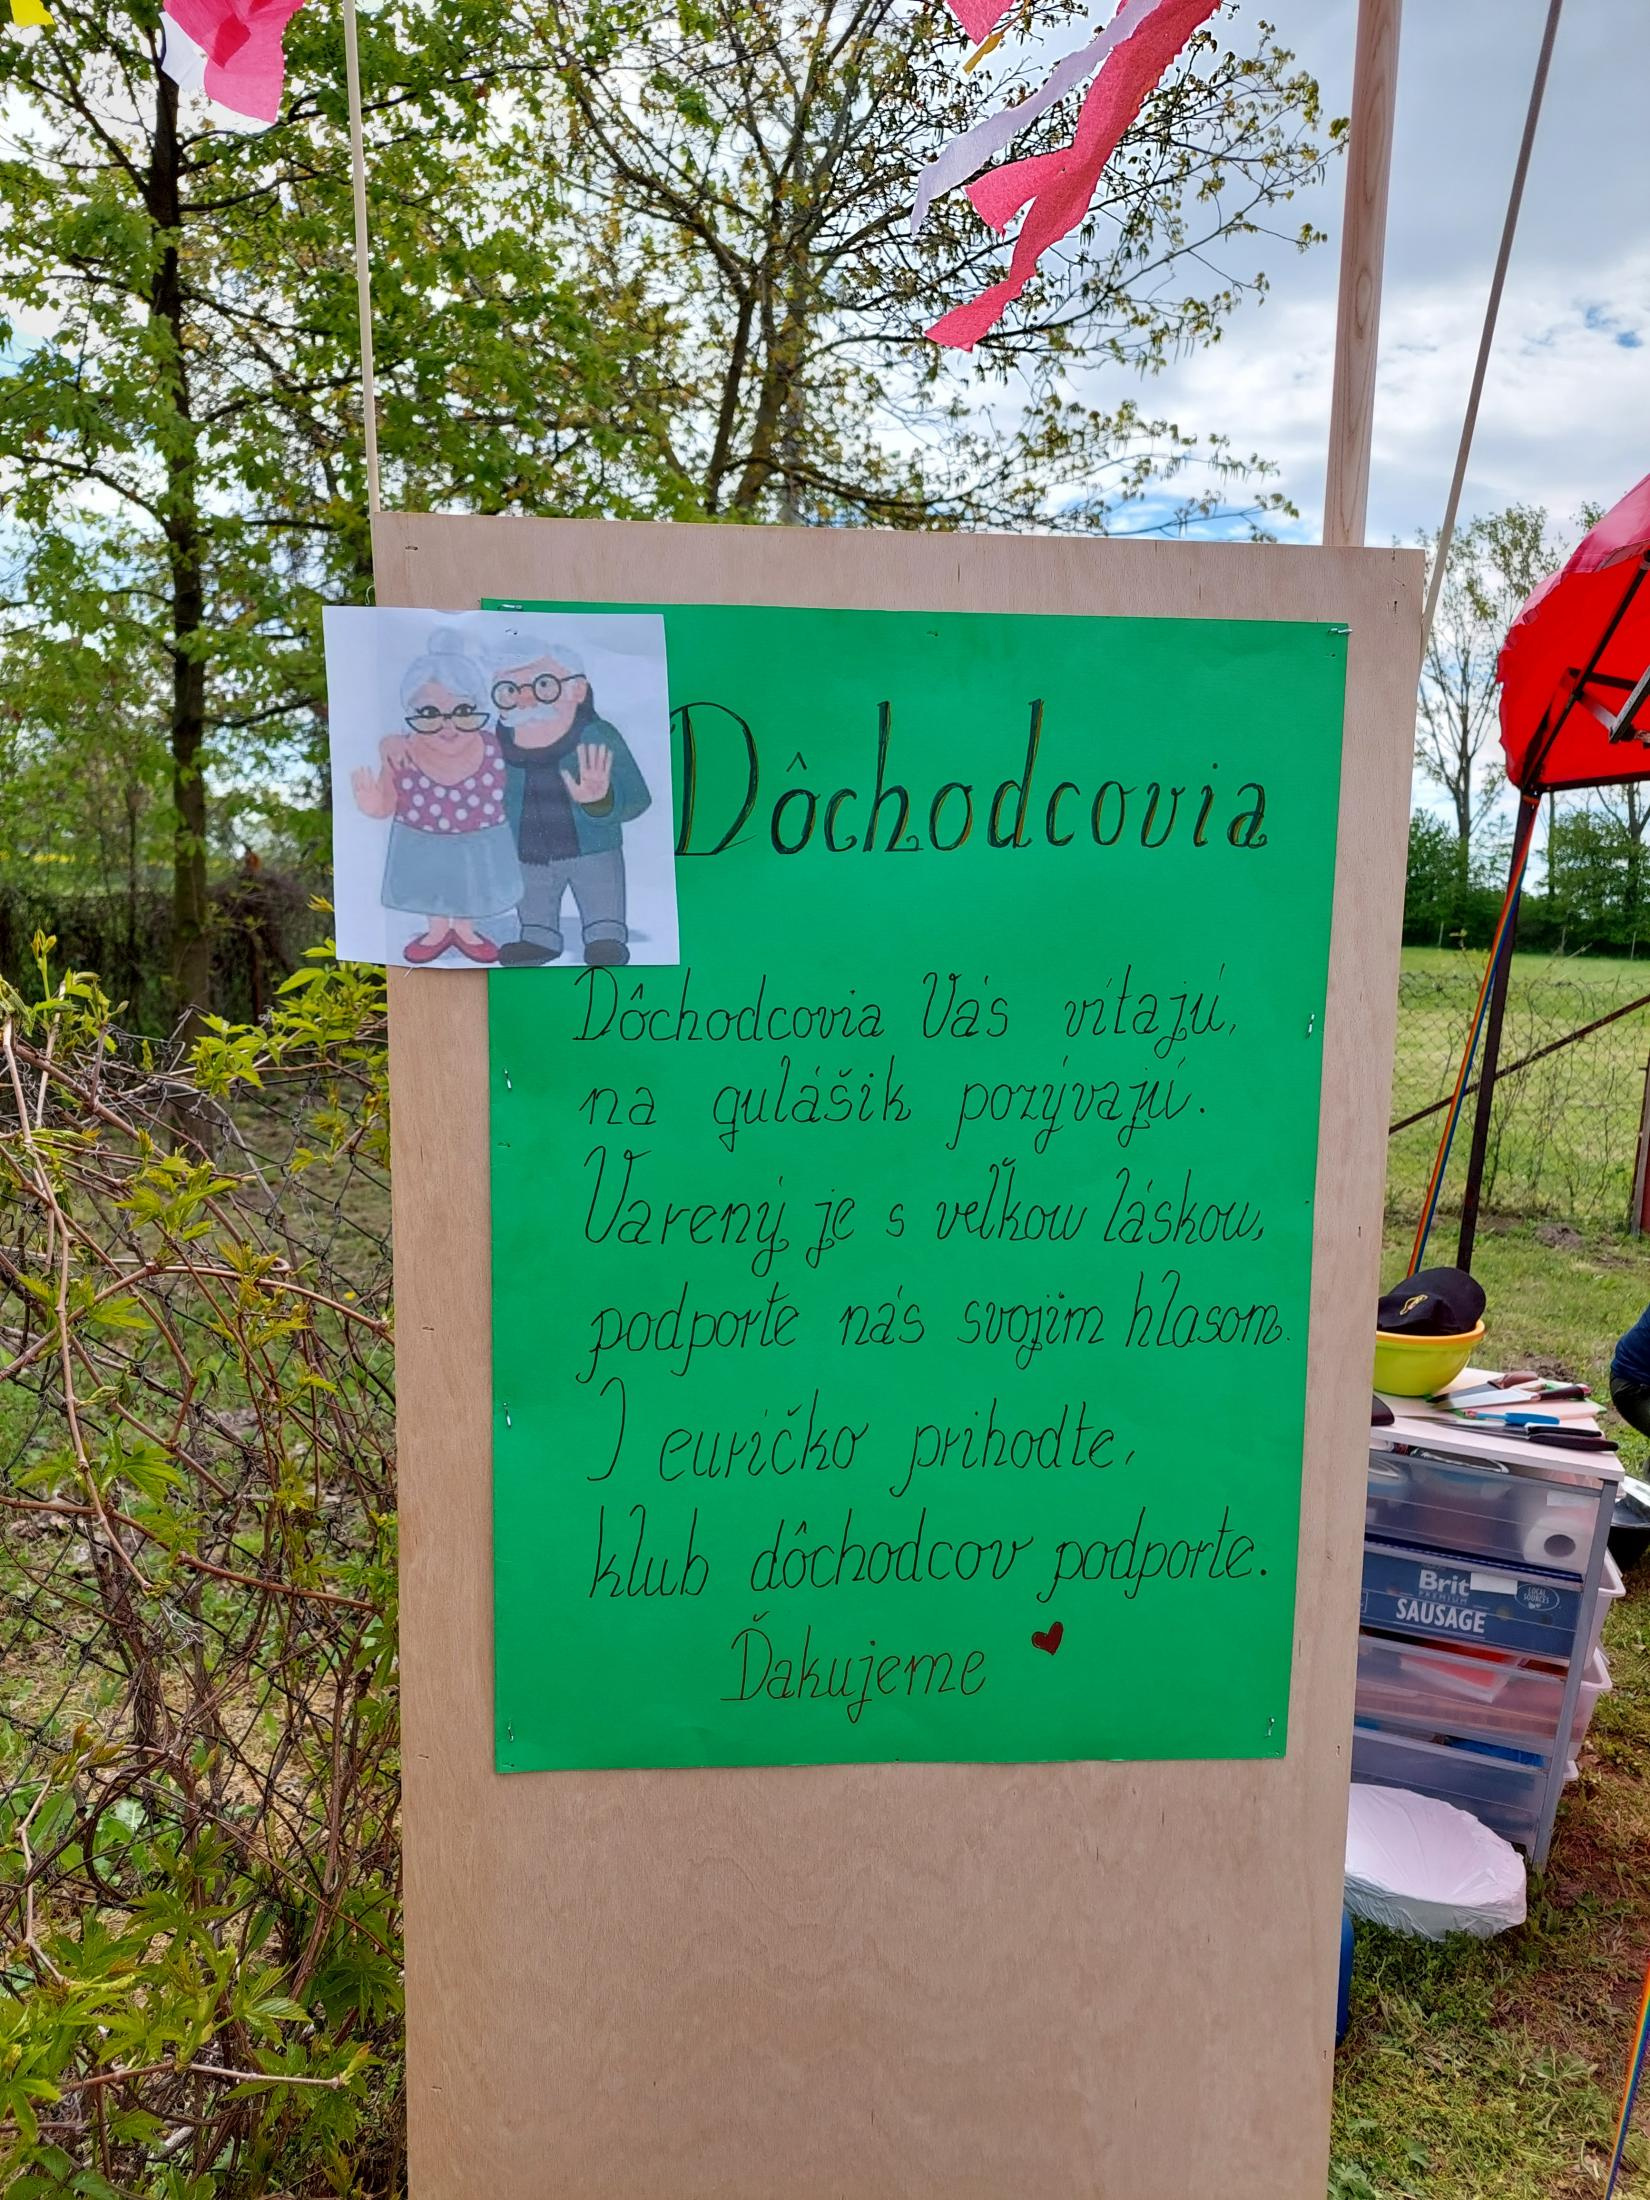 Dôchodcovia
Dôchodcovia Vás vítajú,
na gulášik pozývajú.
Varený je s veľkou láskou,
podporte nás svojim hlasom.
I euríčko prihoďte,
klub dôchodcov podporte.
Ďakujeme
Brit
PREMIUM
SAUSAGE
LOCAL
SOURCES